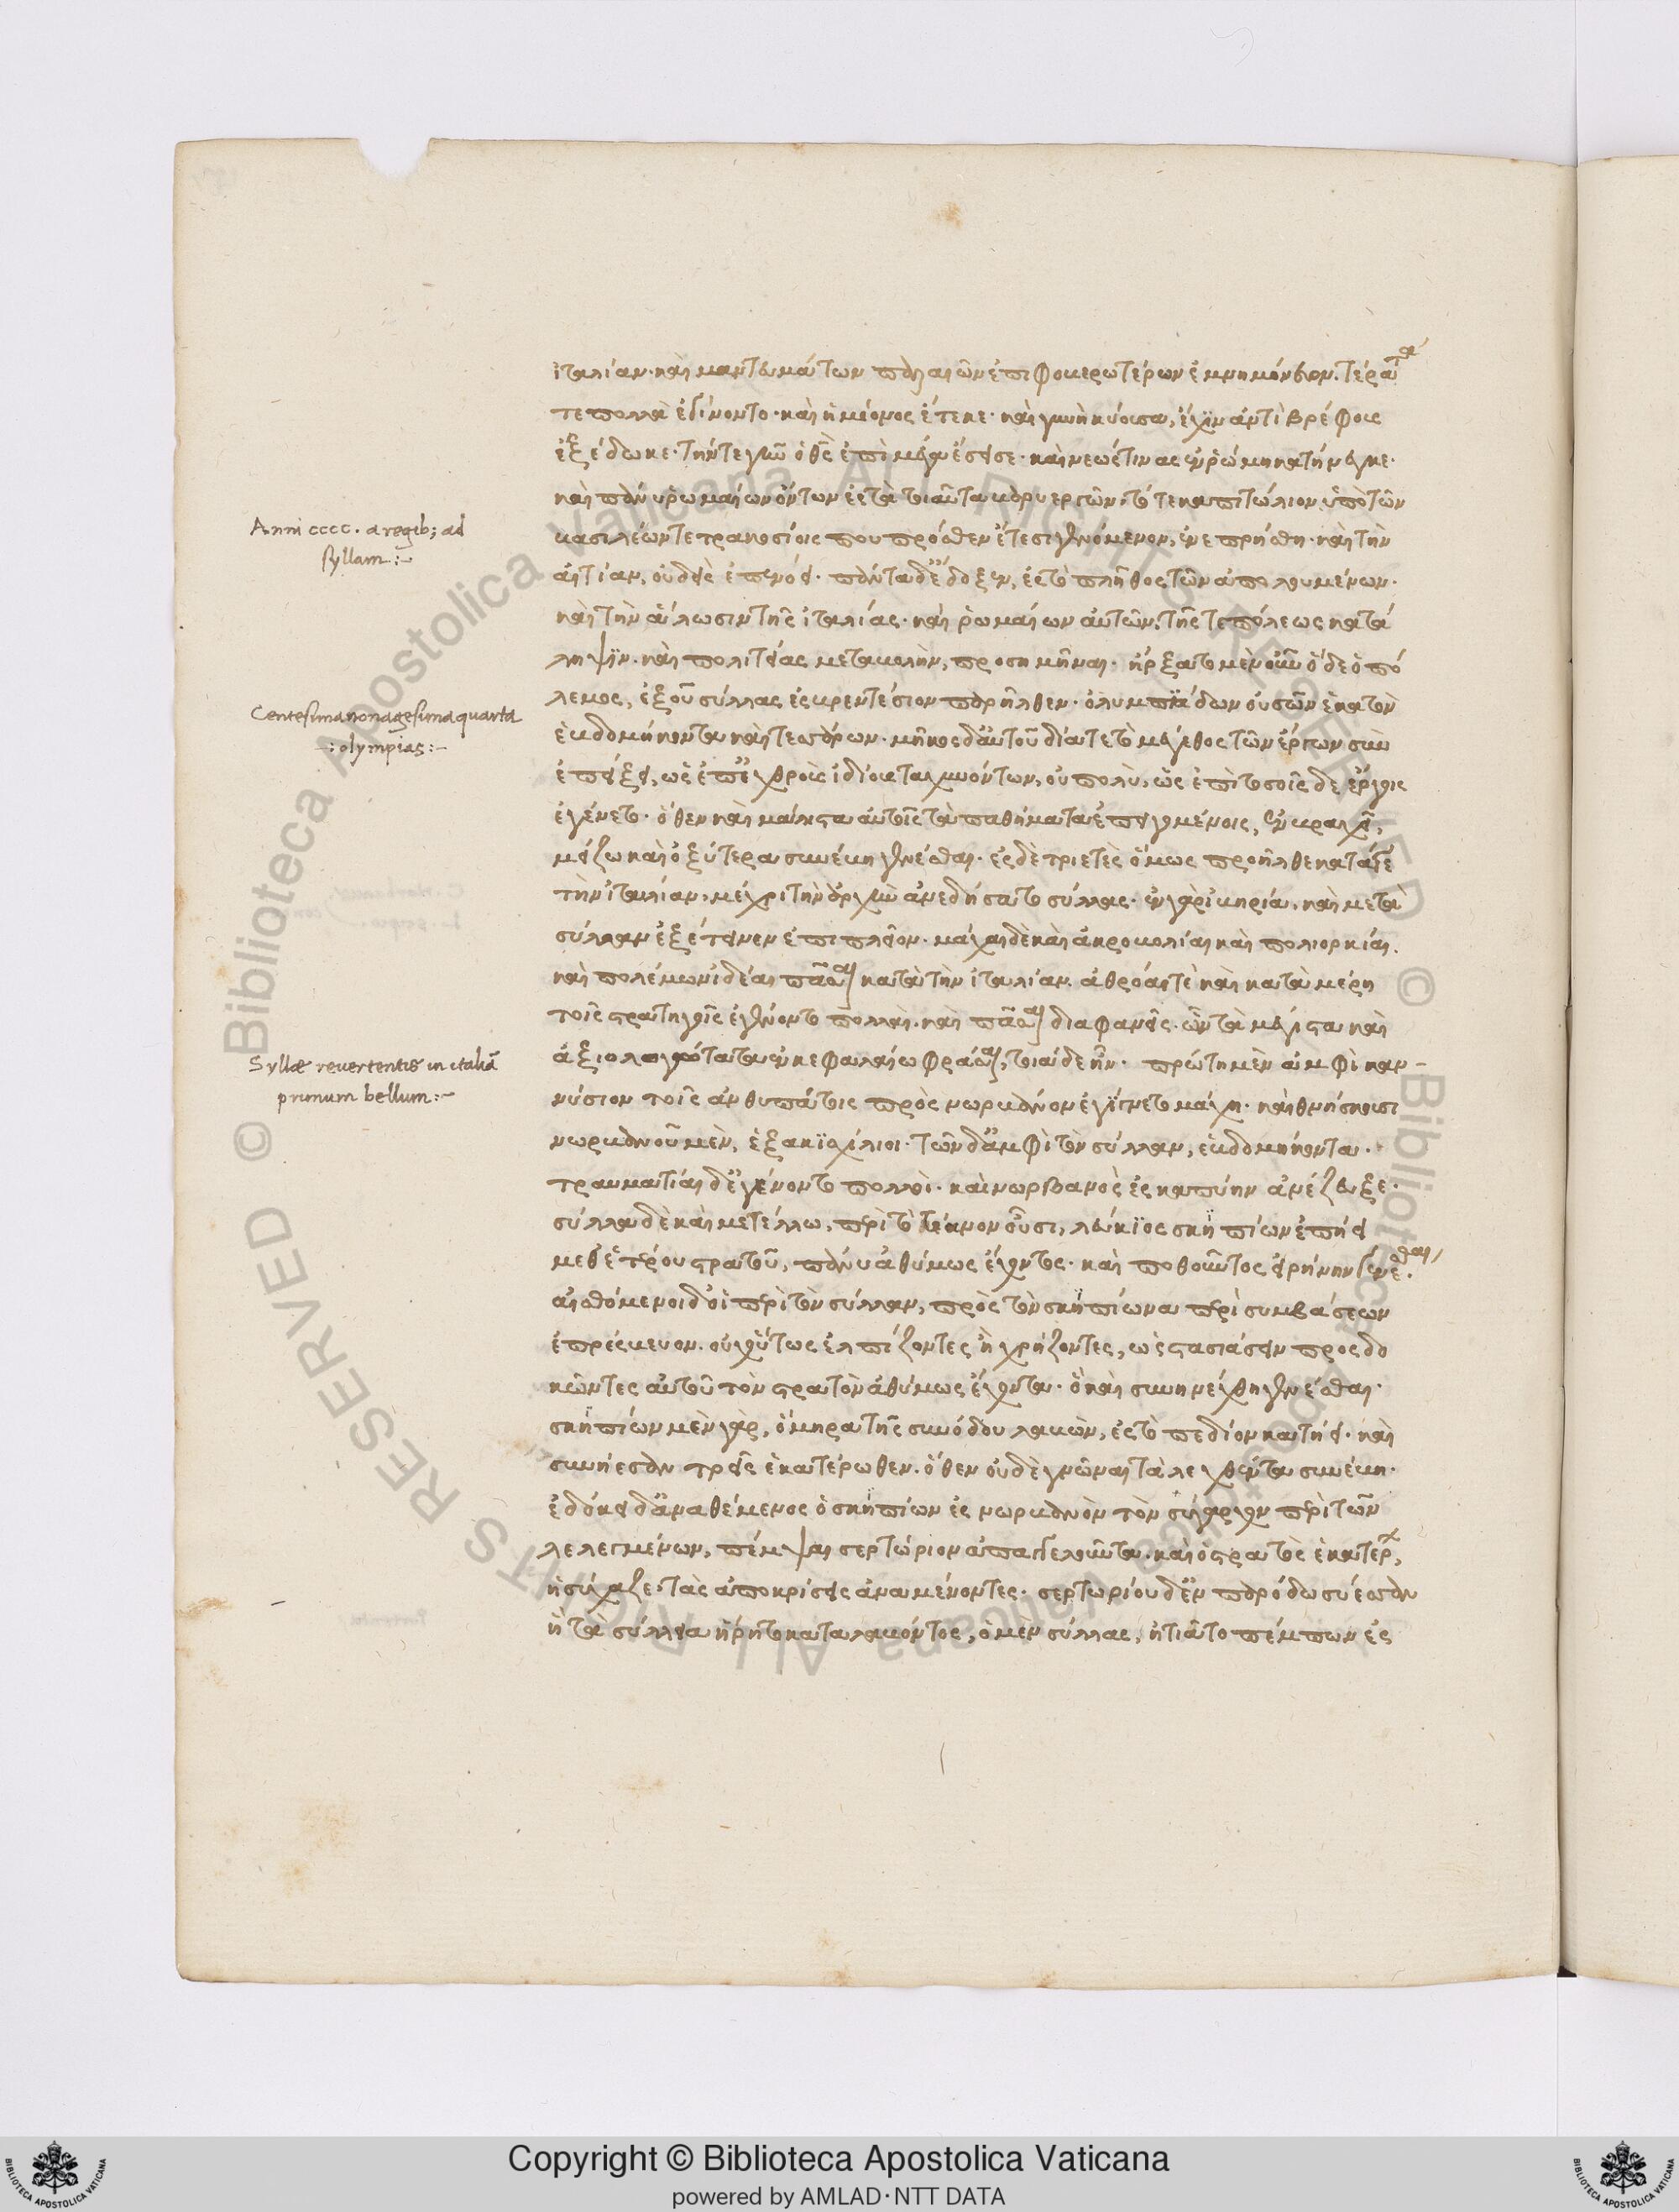 ἰταλίαν· καὶ μαντευμάτων παλαιῶν ἐπιφοβερωτέρων ἐμνημόνευον. τέρατα
τε πολλὰ ἐγίνοντο· καὶ ἡμίονος ἔτεκε· καὶ γυνὴ κύουσα, ἔχιν ἀντὶ βρέφους
ἐξέδωκε· τήν τε γῆν ὁ θεὸς ἐπὶ μέγα ἔσεισε· καὶ νεώς τινας ἐν ῥώμῃ κατήνεγκε·
καὶ πάνυ ῥωμαίων ὄντων ἐς τὰ τοιαῦτα βαρυεργῶν· τό τε καπιτώλιον ὑπὸ τῶν
βασιλέων τετρακοσίοις που πρόσθεν ἔτεσι γενόμενον, ἐνεπρήσθη· καὶ τὴν
αἰτίαν, οὐδεὶς ἐπενόει· πάντα δ' ἔδοξεν, ἐς τὸ πλῆθος τῶν ἀπολουμένων·
καὶ τὴν ἅλωσιν τῆς ἰταλίας· καὶ ῥωμαίων αὐτῶν· τῆς τε πόλεως κατά
ληψιν· καὶ πολιτείας μεταβολὴν, προσημῆναι· ἤρξατο μὲν οὖν ὅδε ὁ πό
λεμος, ἐξ οὗ σύλλας ἐς βρεντέσιον παρῆλθεν· ὀλυμπιάδων οὐσῶν ἑκατὸν
ἑβδομήκοντα καὶ τεσσάρων· μῆκος δ' αὐτοῦ διά τε τὸ μέγεθος τῶν ἔργων συν
ἐπείξει, ὡς ἐπ' ἐχθροὺς ἰδίους ταχυνόντων, οὐ πολὺ, ὡς ἐπὶ τοσοῖσδε ἔργοις
ἐγένετο· ὅθεν καὶ μάλιστα αὐτοῖς τὰ παθήματα ἐπειγομένοις, ἐν βραχεῖ,
μείζω καὶ ὀξύτερα συνέβη γενέσθαι· ἐς δὲ τριετὲς ὅμως προῆλθε κατά γε
τὴν ἰταλίαν, μέχρι τὴν ἀρχὴν ἀνεδήσατο σύλλας· ἐν γὰρ ἰβηρίᾳ, καὶ μετὰ
σύλλαν ἐξέτεινεν ἐπιπλεῖον· μάχαι δὲ καὶ ἀκροβολίαι καὶ πολιορκίαι
καὶ πολέμων ἰδέαι πᾶσαι κατὰ τὴν ἰταλίαν ἀθρόαι τὲ καὶ κατὰ μέρη
τοῖς στρατηγοῖς ἐγένοντο πολλαὶ· καὶ πᾶσαι διαφανεῖς· ὧν τὰ μέγιστα καὶ
ἀξιολογώτατα ἐν κεφαλαίῳ φράσαι, τοιάδε ἦν· πρώτη μὲν ἀμφὶ καν-
νύσιον τοῖς ἀνθυπάτοις πρὸς νωρβανὸν ἐγίγνετο μάχη· καὶ θνήσκουσι
νωρβανοῦ μὲν, ἑξακισχίλιοι· τῶν δ' ἀμφὶ τὸν σύλλαν, ἑβδομήκοντα·
τραυματίαι δ' ἐγένοντο πολλοὶ· καὶ νωρβανὸς ἐς καπύην ἀνέζευξε·
σύλλᾳ δὲ καὶ μετέλλῳ, περὶ τὸ τέανον οὖσι, λεύκιος σκηπίων ἐπῄει
μεθ' ἑτέρου στρατοῦ, πάνυ ἀθύμως ἔχοντος· καὶ ποθοῦντος εἰρήνην γενέσθαι·
αἰσθόμενοι δ' οἱ περὶ τὸν σύλλαν, πρὸς τὸν σκηπίωνα περὶ συμβάσεων
ἐπρέσβευον· οὐχ οὕτως ἐλπίζοντες ἢ χρῄζοντες, ὡς στασιάσειν προσδο
κῶντες αὐτοῦ τὸν στρατὸν ἀθύμως ἔχοντα· ὃ καὶ συνηνέχθη γενέσθαι·
σκηπίων μὲν γὰρ, ὅμηρα τῆς συνόδου λαβὼν, ἐς τὸ πεδίον κατῄει· καὶ
συνῄεσαν τρεῖς ἑκατέρωθεν· ὅθεν οὐδὲ γνῶναι τὰ λεχθέντα συνέβη·
ἐδόκει δ' ἀναθέμενος ὁ σκηπίων ἐς νωρβανὸν τὸν σύναρχον περὶ τῶν
λελεγμένων, πέμψαι σερτώριον ἀπαγγελοῦντα· καὶ ὁ στρατὸς ἑκατέρων,
ἡσύχαζε· τὰς ἀποκρίσεις ἀναμένοντες· σερτωρίου δ' ἐν παρόδῳ συέσσαν
ἣ τὰ σύλλεια ᾕρητο καταλαβόντος, ὁ μὲν σύλλας, ᾐτιᾶτο πέμπων ἐς
Anni cccc. a regib; ad
syllam:-
Centesima nonagesima quarta
-:olympias:-
Syllæ reuertentis in italiã
primum bellum:-
Copyright © Biblioteca Apostolica Vaticana
powered by AMLAD·NTT DATA